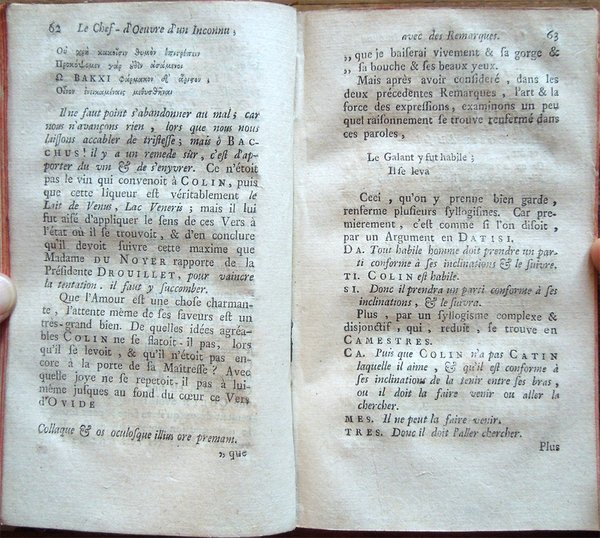 62 Le Chef-d'Oeuvre d'un Inconnu,
Οὐ χρὴ κακοῖσιν θυμὸν ἐπιτρέπειν
Προκόψομεν γὰρ οὐδὲν ἀσάμενοι
Ω ΒΑΚΧΙ φάρμακον δ' ἄριστον,
Οἶνον ἐνικαμένοις μεθυσθῆναι
Il ne faut point s'abandonner au mal; car
nous n'avançons rien, lors que nous nous
laissons accabler de tristesse; mais ô BAC-
CHUS! il y a un remede sûr, c'est d'ap-
porter du vin & de s'enyvrer. Ce n'étoit
pas le vin qui convenoit à COLIN, puis
que cette liqueur est véritablement le
Lait de Venus, Lac Veneris; mais il lui
fut aisé d'appliquer le sens de ces Vers à
l'état où il se trouvoit, & d'en conclure
qu'il devoit suivre cette maxime que
Madame DU NOYER rapporte de la
Présidente DROUILLET, pour vaincre
la tentation. il faut y succomber.
Que l'Amour est une chose charman-
te, l'attente même de ses faveurs est un
tres-grand bien. De quelles idées agréa-
bles COLIN ne se flatoit-il pas, lors
qu'il se levoit, & qu'il n'étoit pas en-
core à la porte de sa Maitresse? Avec
quelle joye ne se repetoit-il pas à lui-
même jusques au fond du cœur ce Vers
d'OVIDE
Collaque & os oculosque illius ore premam.
„ que
avec des Remarques. 63
„ que je baiserai vivement & sa gorge &
„ sa bouche & ses beaux yeux.
Mais après avoir consideré, dans les
deux précedentes Remarques, l'art & la
force des expressions, examinons un peu
quel raisonnement se trouve renfermé dans
ces paroles,
Le Galant y fut habile;
Il se leva
Ceci, qu'on y prenne bien garde,
renferme plusieurs syllogismes. Car pre-
mierement, c'est comme si l'on disoit,
par un Argument en DATISI.
DA. Tout habile homme doit prendre un par-
ti conforme à ses inclinations & le suivre.
TI. COLIN est habile.
SI. Donc il prendra un parti conforme à ses
inclinations, & le suivra.
Plus, par un syllogisme complexe &
disjonctif, qui, reduit, se trouve en
CAMESTRES.
CA. Puis que COLIN n'a pas CATIN
laquelle il aime, & qu'il est conforme à
ses inclinations de la tenir entre ses bras,
ou il doit la faire venir ou aller la
chercher.
MES. Il ne peut la faire venir.
TRES. Donc il doit l'aller chercher.
Plus